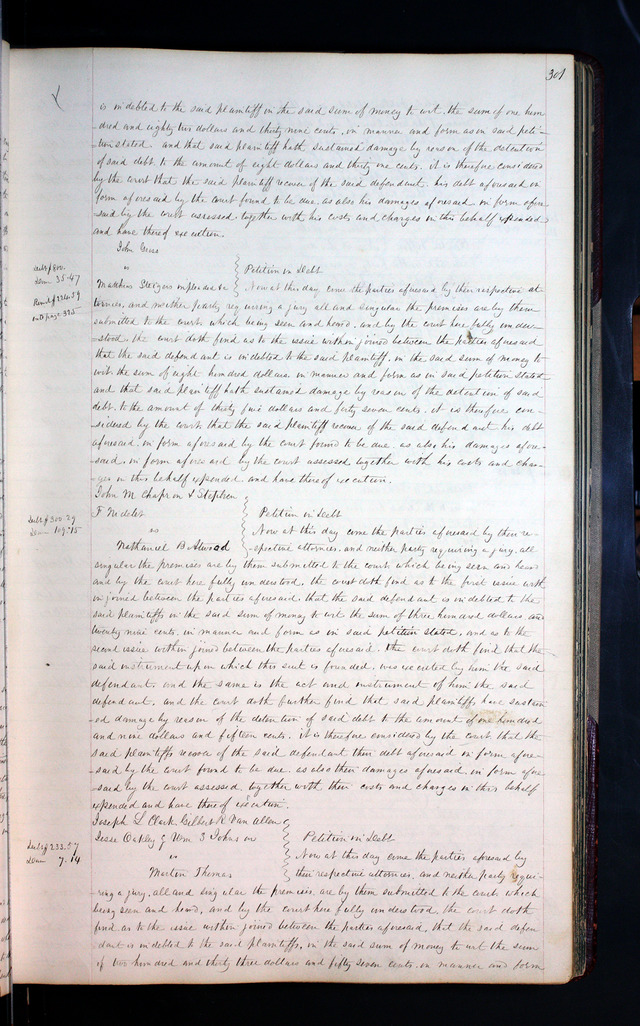 301
is indebted to the said plaintiff in the said sum of money to wit, the sum of one hun
-dred and eighty two dollars and thirty nine cents, in manner and form as in said peti-
-tion stated, and that said plaintiff hath sustained damage by reason of the detention
of said debt to the amount of eight dollars and thirty one cents. it is therefore considered
by the court that the said plaintiff recover of the said defendant, his debt aforesaid in
form aforesaid by the court found to be due, as also his damages aforesaid, in form afore
-said by the court assessed together with his costs and charges in this behalf expended
and have thereof execution.
John
vs
Petition in Debt
Debt $800.
Dam 35-47
Matthias impleaded &c
Now at this day come the parties aforesaid by their respective at
$234.59
page 325
tornies, and neither party requiring a jury all and singular the premises are by them
submitted to the court, which being seen and heard, and by the court here fully under
-stood, the court doth find as to the issue within joined between the parties aforesaid
that the said defendant is indebted to the said plaintiff, in the said sum of money to
wit the sum of eight hundred dollars in manner and form as in said petition stated
and that said plaintiff hath sustained damage by reason of the detention of said
debt, to the amount of thirty five dollars and forty seven cents, it is therefore con-
-sidered by the court that the said plaintiff recover of the said defendant his debt
aforesaid, in form aforesaid by the court found to be due, as also his damages afore-
-said, in form aforesaid by the court assessed together with his costs and char-
-ges in this behalf expended, and have thereof execution.
John M. Chapron & Stephen
F Nidelet
Petition in Debt
Debt $300.29
Dam 109.15
vs
Now at this day come the parties aforesaid by their re-
Nathaniel B Atwood
-spective attornies, and neither party requiring a jury, all
singular the premises are by them submitted to the court which being seen and heard
and by the court here fully understood, the court doth find as to the first issue with
in joined between the parties aforesaid, that the said defendant is indebted to the
said plaintiffs in the said sum of money to wit the sum of three hundred dollars and
twenty nine cents, in manner and form as in said petition stated, and as to the
second issue within joined between the parties aforesaid. the court doth find that the
said instrument upon which this suit is founded, was executed by him the said
defendant, and the same is the act and instrument of him the said
defendant, and the court doth further find that said plaintiffs have sustain
ed damage by reason of the detention of said debt to the amount of one hundred
and nine dollars and fifteen cents. it is therefore considered by the court that the
said plaintiffs recover of the said defendant their debt aforesaid in form afore-
-said by the court found to be due, as also their damages aforesaid, in form afore
-said by the court assessed, together with their costs and charges in this behalf
expended and have thereof execution.
Joseph L Clark Gilbert R Van Allen
Jesse Oakley & Wm S Johnson
Petition in Debt
Debt $233.57
Dam 7.14
vs
Now at this day come the parties aforesaid by
Martin Thomas
their respective attornies, and neither party requi-
-ring a jury, all and singular the premises, are by them submitted to the court which
being seen and heard, and by the court here fully understood, the court doth
find as to the issue within joined between the parties aforesaid, that the said defen
-dant is indebted to the said plaintiffs, in the said sum of money to wit the sum
of two hundred and thirty three dollars and fifty seven cents, in manner and form